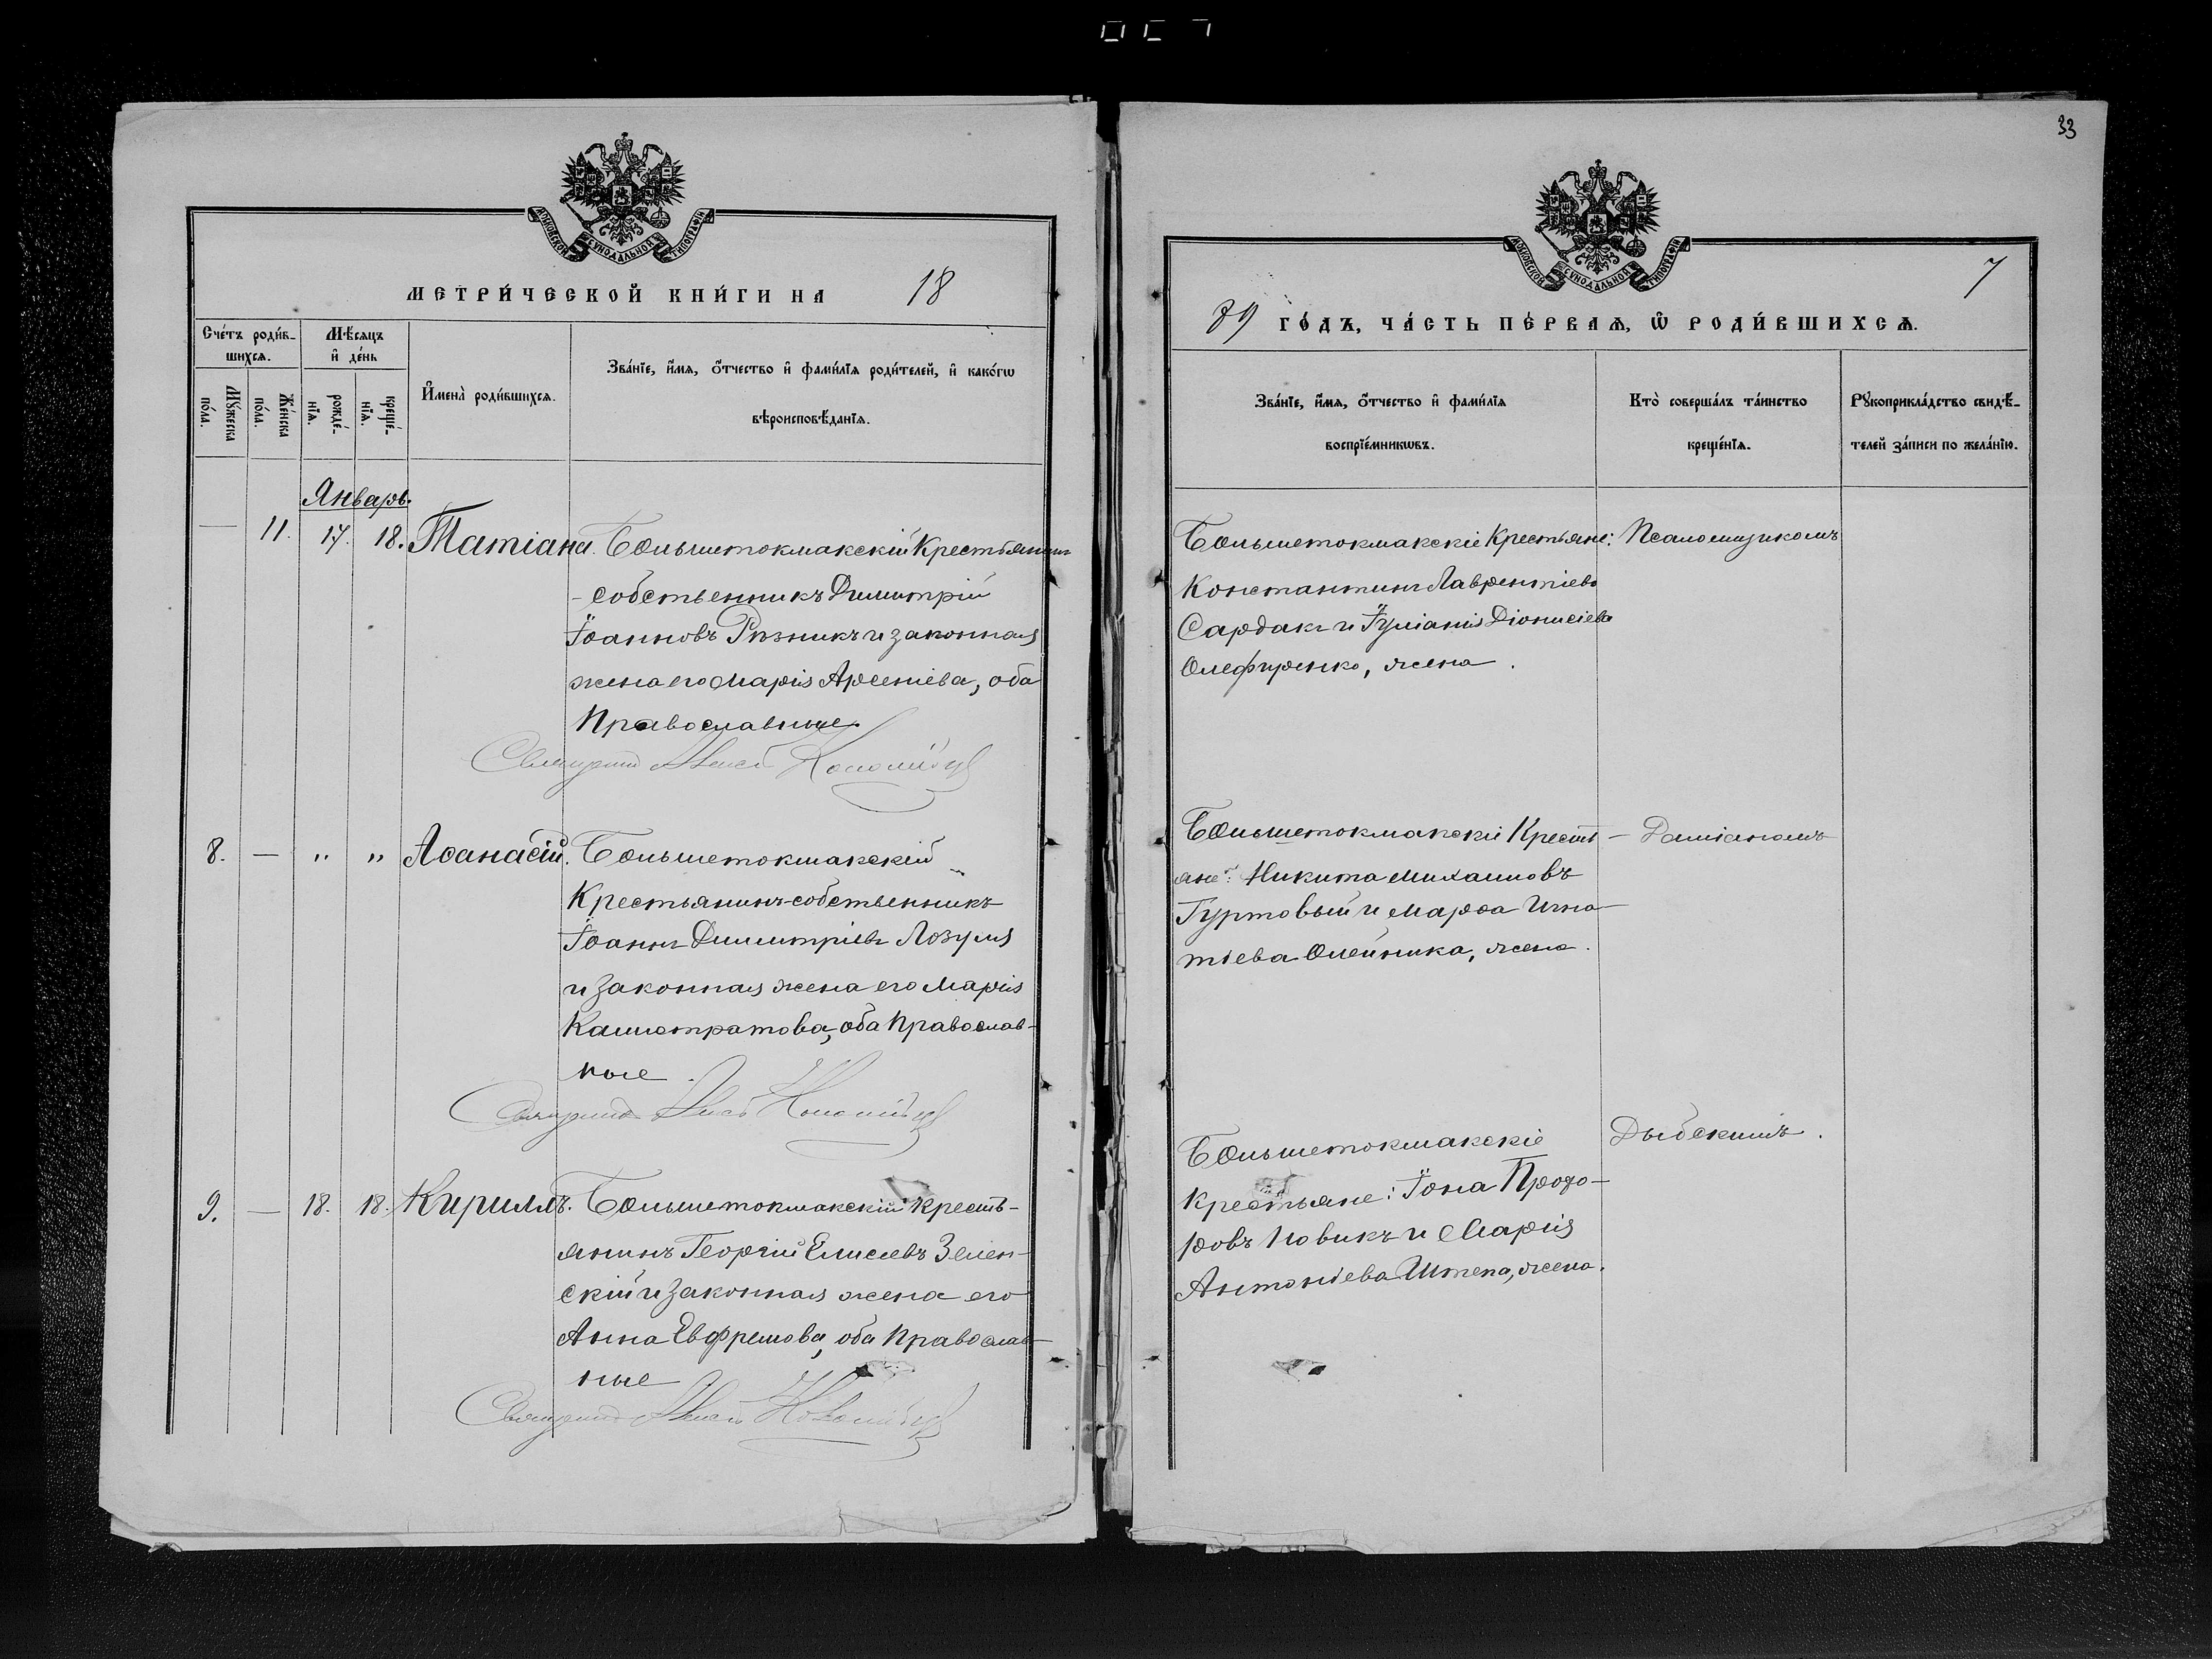 33
МОСКОВСКОЙ СѴНОДАЛЬНОЙ ТИПОГРАФІИ
МЕТРИ́ЧЕСКОЙ КНИ́ГИ НА 18
Сче́тъ роди́в-
шихсѧ.
Мѹ́жеска
по́ла.
Же́нска
по́ла.
Мѣ́сѧцъ
и҆ де́нь
рожде́-
нїѧ.
креще́-
нїѧ.
И҆мена̀ роди́вшихсѧ.
Зва́нїе, и҆́мѧ, ѻ҆́тчество и҆ фами́лїѧ роди́телей, и҆ како́гѡ
вѣроисповѣ́данїѧ.
Январь.
— 11. 17. 18. Татіана. Большетокмакскій Крестьянинъ
- собственникъ Димитрій
Іоанновъ Рѣзникъ и законная
жена его Марія Арсеніева, оба
Православные.
Священникъ Коломійцъ
8. — " " Аѳанасій. Большетокмакскій
Крестьянинъ-собственникъ
Іоаннъ Димитріевъ Лозуля
и законная жена его Марія
Каллистратова, оба Православ-
ные.
Священникъ Коломійцъ
9. — 18. 18. Кириллъ. Большетокмакскій Кресть-
янинъ Георгій Елисеевъ Зелен-
скій и законная жена его
Анна Евфремова, оба Православ-
ные
Священникъ Коломійцъ
МОСКОВСКОЙ СѴНОДАЛЬНОЙ ТИПОГРАФІИ
7
89 ГО́ДЪ, ЧА́СТЬ ПЕ́РВАѦ, Ѽ РОДИ́ВШИХСѦ.
Зва́нїе, и҆́мѧ, ѻ҆́тчество и҆ фами́лїѧ
воспрїе́мникѡвъ.
Кто̀ соверша́лъ та́инство
креще́нїѧ.
Рꙋкоприкла́дство свидѣ́-
телей за́писи по жела́нїю.
Большетокмакскіе Крестьяне: Псаломщикомъ
Константинъ Лаврентіевъ
Сардакъ и Іуліанія Діонисіева
Олефиренко, жена.
Большетокмакскіе Кресть- Даміаномъ
яне: Никита Михаиловъ
Гуртовый и Марѳа Игна-
тіева Олейника, жена.
Большетокмакскіе Дыбскимъ.
Крестьяне: Іона Прохо-
ровъ Новикъ и Марія
Антоніева Штепа, жена.